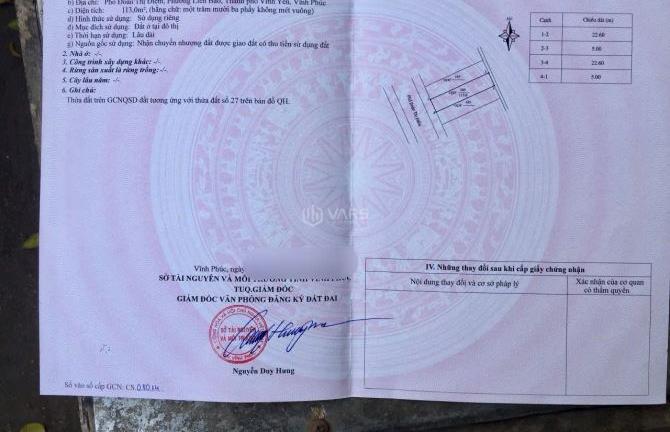 b) Địa chỉ: Phố Đoàn Thị Điểm, Phường Liên Bảo, Thành phố Vĩnh Yên, Vĩnh Phúc
c) Diện tích: 113,0m², (bằng chữ: một trăm mười ba phảy không mét vuông)
d) Hình thức sử dụng: Sử dụng riêng
đ) Mục đích sử dụng: Đất ở tại đô thị
e) Thời hạn sử dụng: Lâu dài
g) Nguồn gốc sử dụng: Nhận chuyển nhượng đất được giao đất có thu tiền sử dụng đất
2. Nhà ở: -/-
3. Công trình xây dựng khác: -/-
4. Rừng sản xuất là rừng trồng: -/-
5. Cây lâu năm: -/-
6. Ghi chú:
Thửa đất trên GCNQSD đất tương ứng với thửa đất số 27 trên bản đồ QH.
Cạnh Chiều dài (m)
1-2 22.60
2-3 5.00
3-4 22.60
4-1 5.00
VARS
Vĩnh Phúc, ngày
SỞ TÀI NGUYÊN VÀ MÔI
TUQ.GIÁM ĐỐC
GIÁM ĐỐC VĂN PHÒNG ĐĂNG KÝ ĐẤT ĐAI
SỞ TÀI NGUYÊN
VÀ MÔI
Nguyễn Duy Hưng
Số vào sổ cấp GCN: CS
IV. Những thay đổi sau khi cấp giấy chứng nhận
Nội dung thay đổi và cơ sở pháp lý
Xác nhận của cơ quan
có thẩm quyền